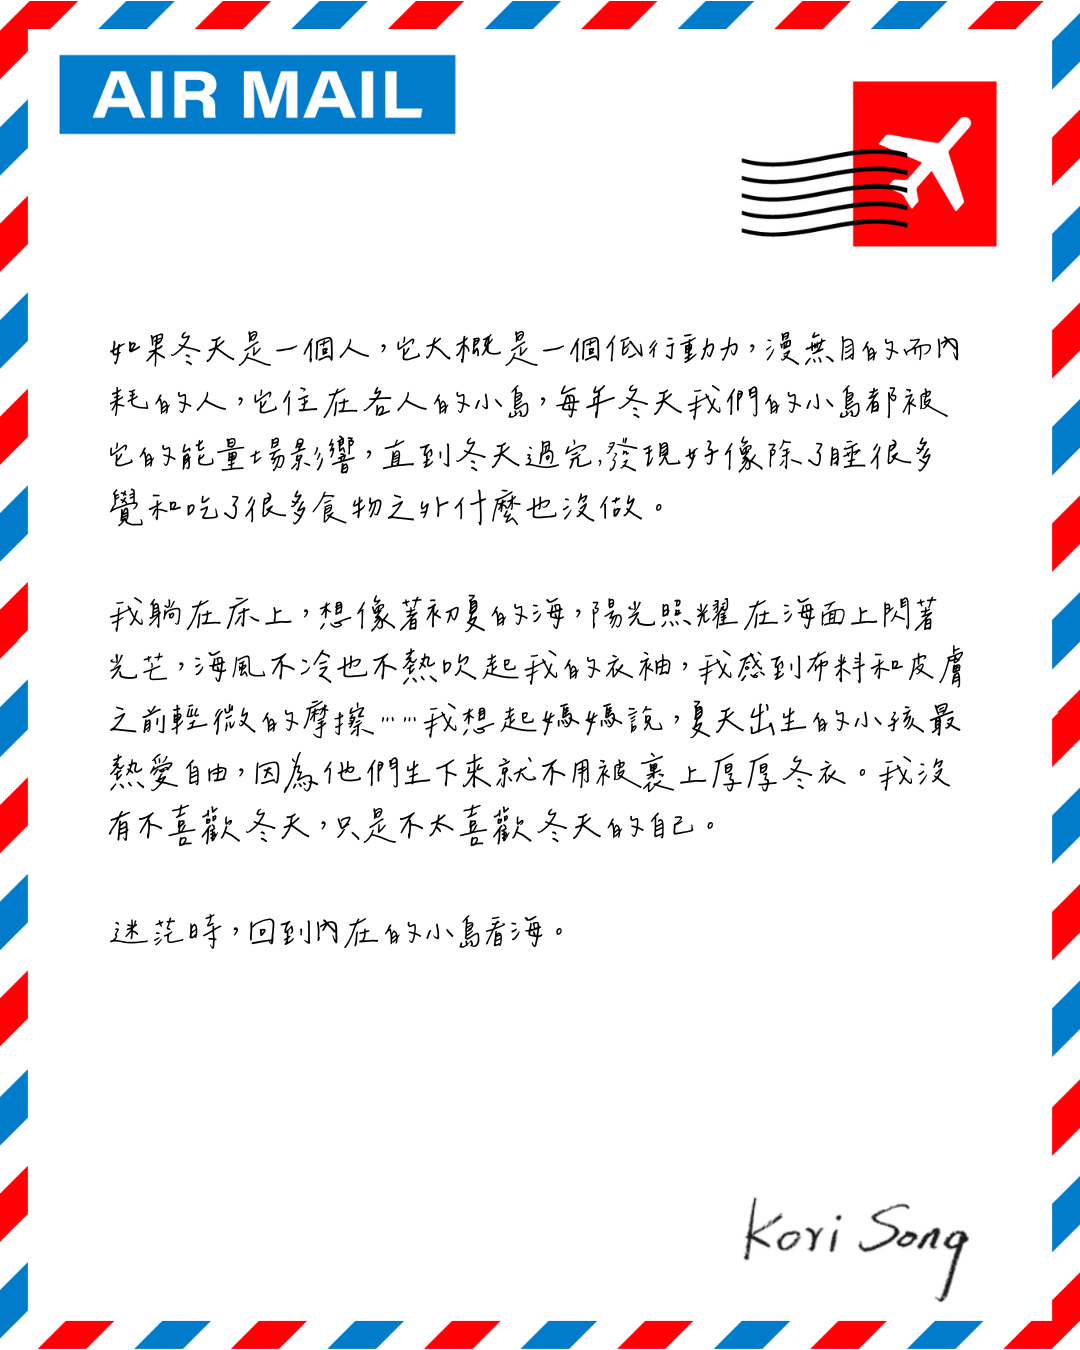 AIR MAIL
如果冬天是一個人，它大概是一個低行動力，漫無目的而內
耗的人，它住在各人的小島，每年冬天我們的小島都被
它的能量場影響，直到冬天過完，發現好像除了睡很多
覺和吃了很多食物之外什麼也沒做。
我躺在床上，想像著初夏的海，陽光照耀在海面上閃著
光芒，海風不冷也不熱吹起我的衣袖，我感到布料和皮膚
之前輕微的摩擦……我想起媽媽說，夏天出生的小孩最
熱愛自由，因為他們生下來就不用被裹上厚厚冬衣。我沒
有不喜歡冬天，只是不太喜歡冬天的自己。
迷茫時，回到內在的小島看海。
Kori Song